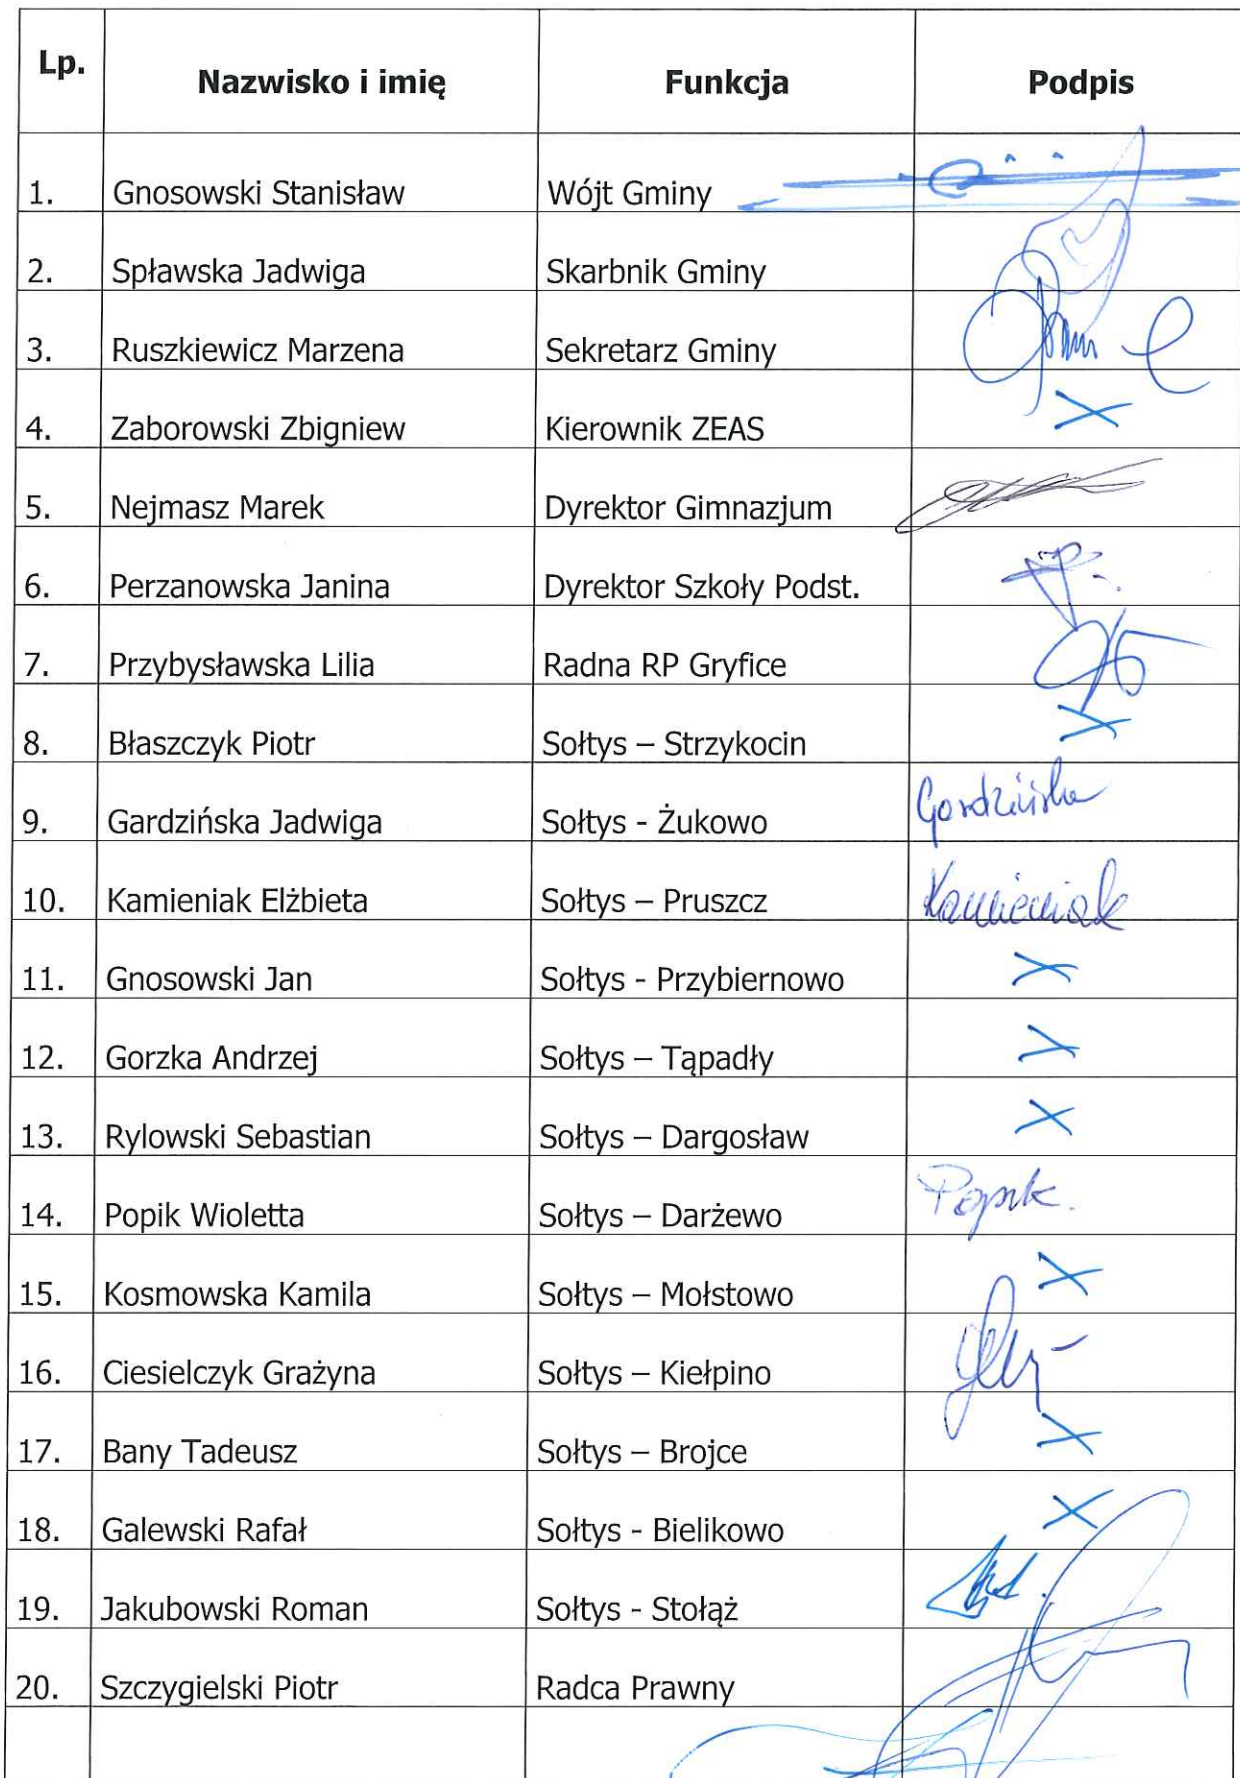 Lp. Nazwisko i imię Funkcja Podpis
1. Gnosowski Stanisław Wójt Gminy
2. Spławska Jadwiga Skarbnik Gminy
3. Ruszkiewicz Marzena Sekretarz Gminy
4. Zaborowski Zbigniew Kierownik ZEAS X
5. Nejmasz Marek Dyrektor Gimnazjum
6. Perzanowska Janina Dyrektor Szkoły Podst.
7. Przybysławska Lilia Radna RP Gryfice
8. Błaszczyk Piotr Sołtys – Strzykocin X
9. Gardzińska Jadwiga Sołtys - Żukowo Gardzińska
10. Kamieniak Elżbieta Sołtys – Pruszcz Kamieniak
11. Gnosowski Jan Sołtys - Przybiernowo X
12. Gorzka Andrzej Sołtys – Tąpadły X
13. Rylowski Sebastian Sołtys – Dargosław X
14. Popik Wioletta Sołtys – Darżewo Popik.
15. Kosmowska Kamila Sołtys – Mołstowo X
16. Ciesielczyk Grażyna Sołtys – Kiełpino
17. Bany Tadeusz Sołtys – Brojce X
18. Galewski Rafał Sołtys - Bielikowo X
19. Jakubowski Roman Sołtys - Stołąż
20. Szczygielski Piotr Radca Prawny